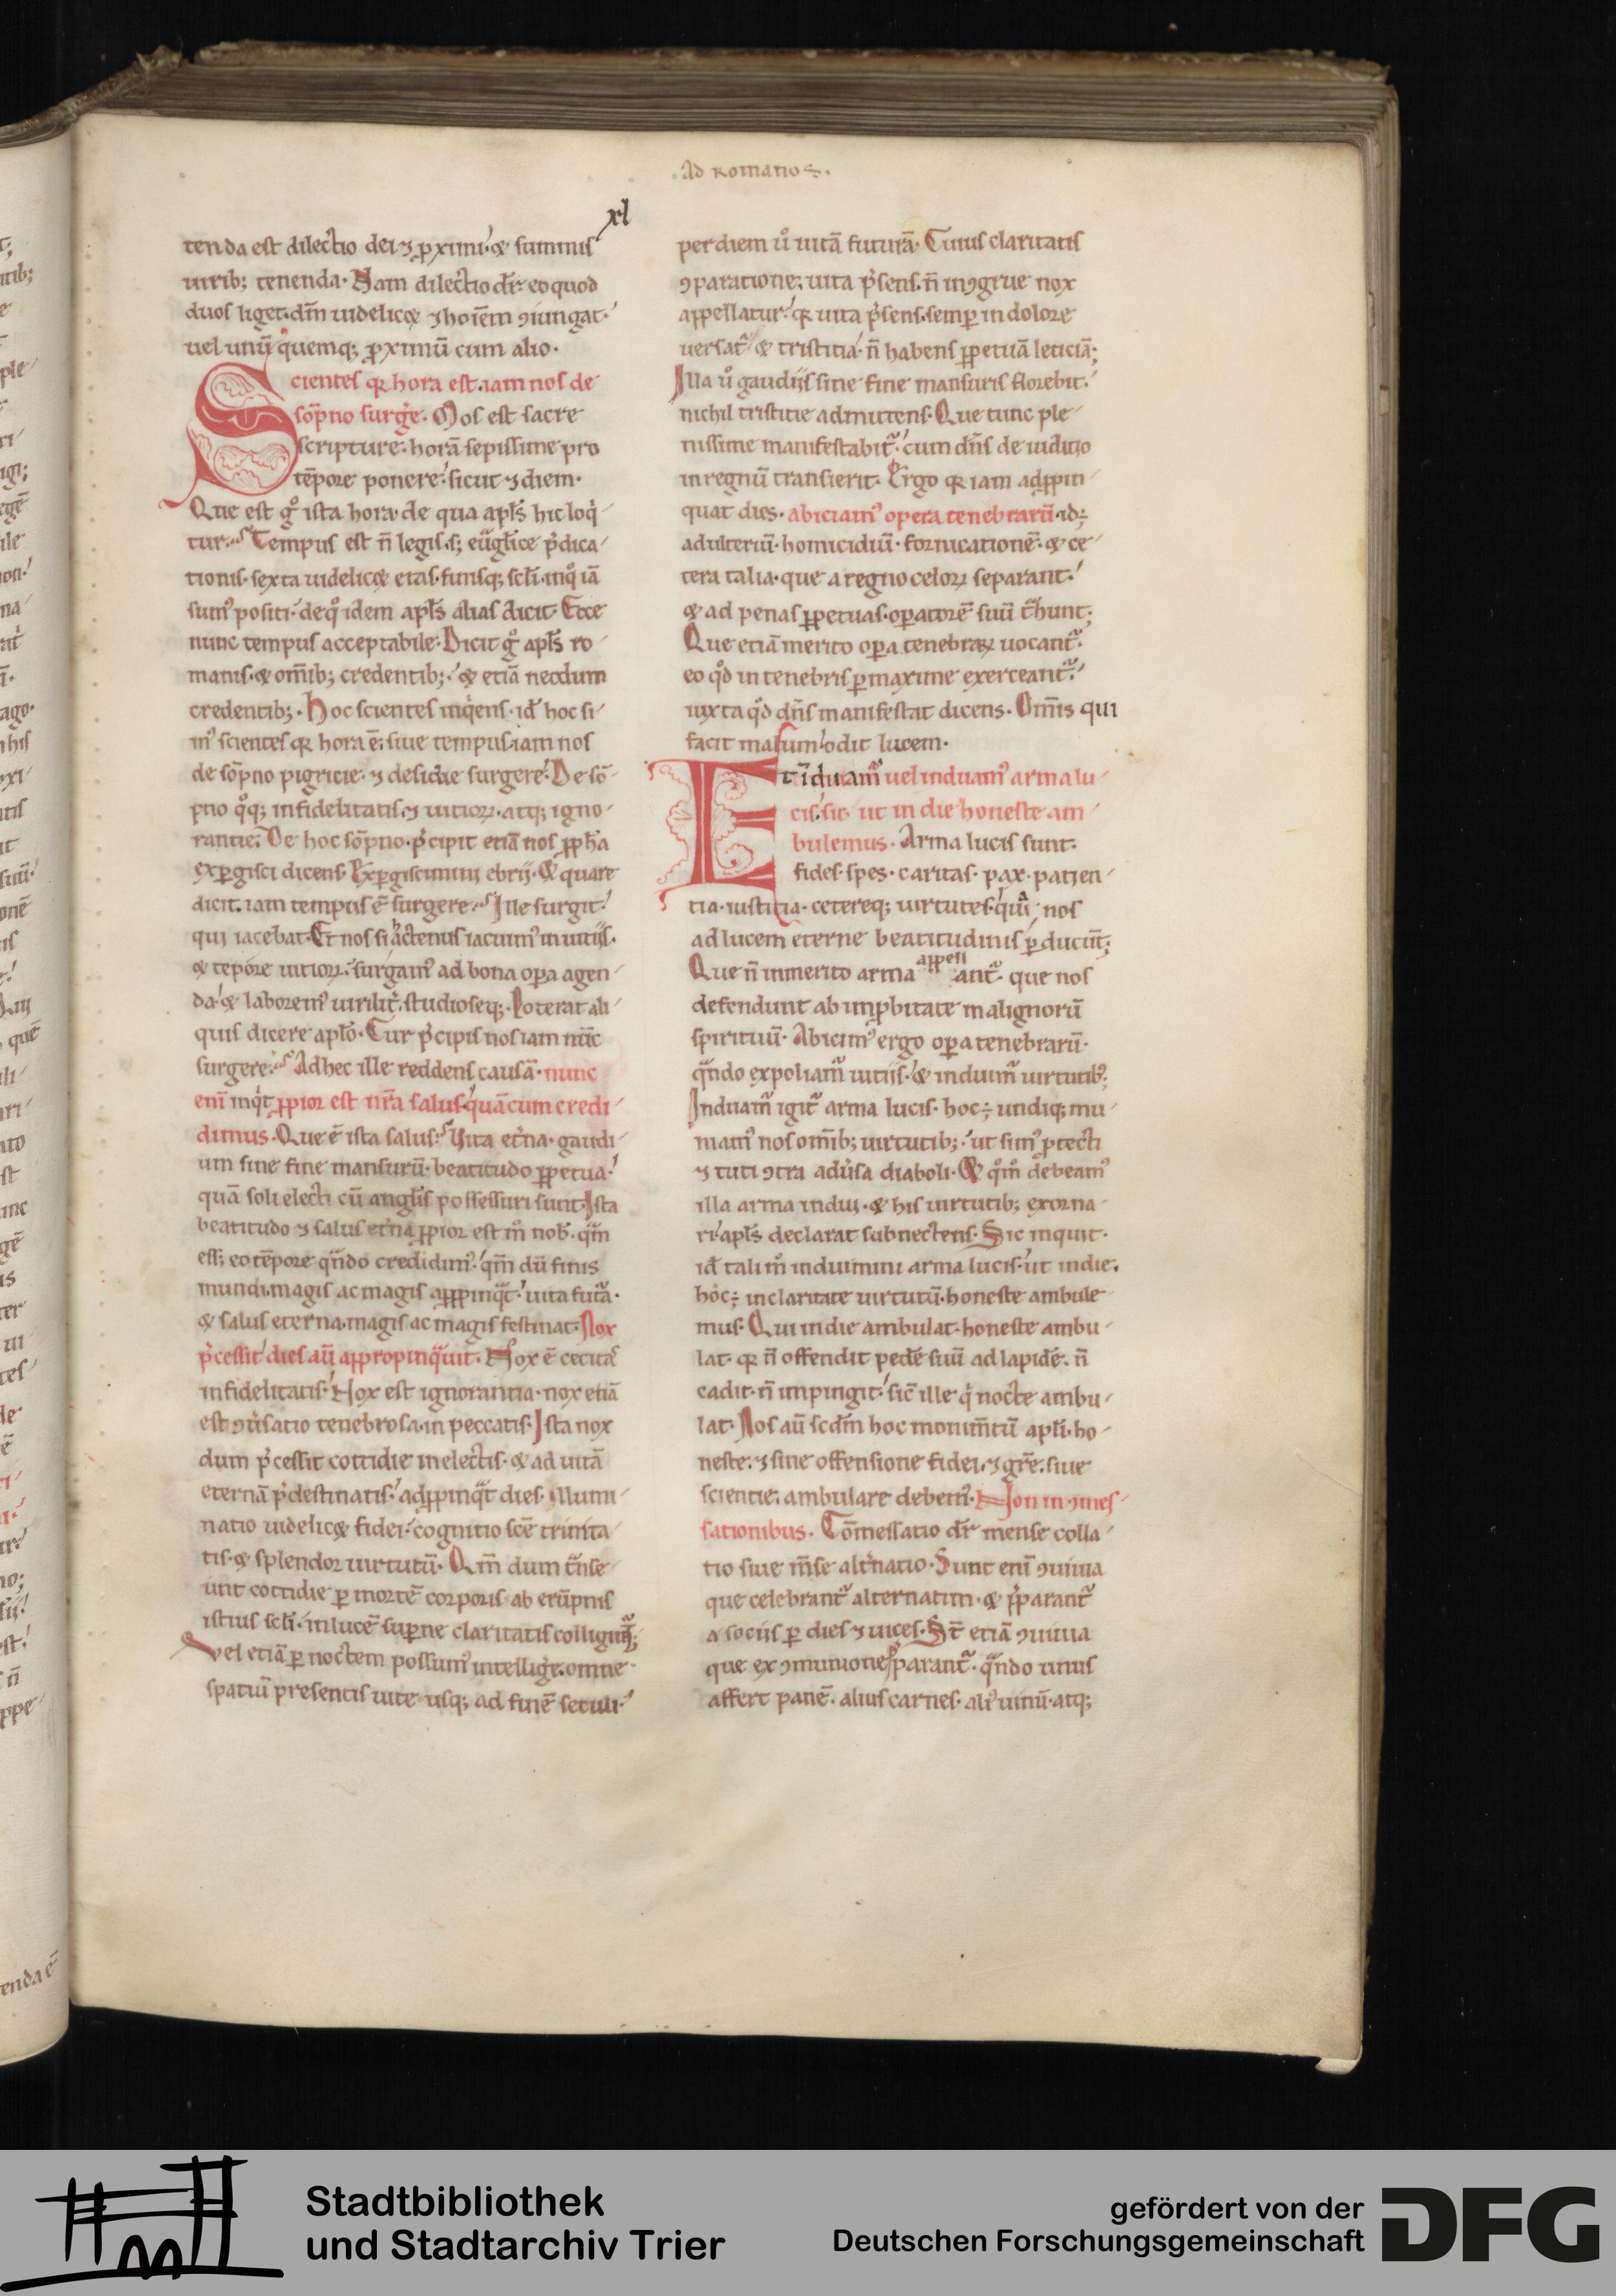 Ad Romanos.
xl
tenda est dilectio dei ⁊ ꝓximi· & summis
uirib; tenenda· Nam dilectio dr̄· eo quod
duos liget· dm̄ uidelic& ⁊ hoiēm ꝯiungat·
uel unū quemq; ꝓximū cum alio·
Scientes qꝛ hora est· iam nos de
sōpno surgere. Mos est sacre
scripture· horā sepissime pro
tēpore ponere· sicut ⁊ diem·
Que est gͦ ista hora· de qua apl̄s hic loqͥ
tur· Tempus est n̄ legis· s; eūglice p̄dica
tionis· sexta uidelic& etas· finisq; scl̄i· in qͦ iā
sumꝰ positi· de qͦ idem apl̄s alias dicit· Ecce
nunc tempus acceptabile· Dicit gͦ apl̄s ro
manis· & om̄ib; credentib;· & etiā necdum
credentib;· Hoc scientes inqͥens· id̄ hoc si
mꝰ scientes qꝛ hora ē· siue tempus· iam nos
de sōpno pigricie· ⁊ desidie surgere· De sō
pno qͦq; infidelitatis· ⁊ uitioꝝ· atq; igno
rantie; De hoc sōpno· p̄cipit etiā nos ꝓph̄a
exꝑgisci dicens· Exꝑgiscimini ebrij· & quare
dicit· iam tempus ē surgere· Ille surgit·
qui iacebat· Et nos si actenus iacuimꝰ in uitijs·
& tepore uitioꝝ· surgamꝰ ad bona oꝑa agen
da· & laboremꝰ uirilit̄· studioseq;· Poterat ali
quis dicere apl̄o· Cur p̄cipis nos iam nūc
surgere· Ad hec ille reddens causā· nunc
enī inqͥt ꝓpior est nr̄a salus· quā cum credi
dimus· Que ē ista salus· Vita et̄na· gaudi
um sine fine mansurū· beatitudo ꝑpetua·
quā soli electi cū angl̄is possessuri sunt· Ista
beatitudo ⁊ salus et̄na ꝓpior est mͦ nob̄· qͣm
ess; eo tēpore qͣndo credidimꝰ· qm̄ dū finis
mundi· magis ac magis aꝓpinqͣt· uita futͣa·
& salus eterna· magis ac magis festinat· Nox
p̄cessit· dies aū appropinqͣuit· Nox ē cecitas
infidelitatis· Nox est ignorantia· nox etiā
est ꝯūsatio tenebrosa· in peccatis· Ista nox
dum p̄cessit cottidie in electis· & ad uitā
eternā p̄destinatis· adꝓpinqͣt dies· Illumi
natio uidelic& fidei· cognitio scē trinita
tis· & splendor uirtutū· Qm̄ dum tͣnse
unt cottidie ꝑ mortē corporis ab erūpnis
istius scl̄i· in lucē suꝑne claritatis colligunt᷑;
Vel etiā ꝑ noctem possumꝰ intelligere· omne
spatiū presentis uite· usq; ad finē seculi·
per diem uͦ uitā futurā· Cuius claritatis
ꝯparatione; uita p̄sens· n̄ inꝯgrue nox
appellatur· qꝛ uita p̄sens· semꝑ in dolore
uersat᷑· & tristitia· n̄ habens ꝑpetuā leticiā;
Illa uͦ gaudijs sine fine mansuris florebit·
nichil tristitie admittens· Que tunc ple
nissime manifestabit᷑· cum dn̄s de iuditio
in regnū transierit· Ergo qꝛ iam adꝓpin
quat dies· abiciamꝰ opera tenebrarū· id÷
adulteriū· homicidiū· fornicationē· & ce
tera talia· que a regno celoꝝ separant·
& ad penas ꝑpetuas· oꝑatorē suū tͣhunt;
Que etiā merito oꝑa tenebraꝝ uocant᷑·
eo qͦd in tenebris ꝑmaxime exerceant᷑·
iuxta qͦd dn̄s manifestat dicens· Om̄is qui
facit malum· odit lucem·
Et īduam᷑ uel induamꝰ arma lu
cis· sic ut in die honeste am
bulemus· Arma lucis sunt·
fides· spes· caritas· pax· patien
tia· iustitia· cetereq; uirtutes· quia nos
ad lucem eterne beatitudinis ꝑducūt;
Que n̄ inmerito arma appellant᷑· que nos
defendunt ab inꝓbitate malignorū
spirituū· Abicimꝰ ergo oꝑa tenebrarū·
qͣndo expoliam᷑ uitijs· & induim᷑ uirtutibꝰ;
Induam᷑ igit᷑ arma lucis· hoc÷ undiq; mu
niamꝰ nos om̄ib; uirtutib;· ut simꝰ ꝓtecti
⁊ tuti ꝯtra adūsa diaboli· & qͦmͦ debeamꝰ
illa arma indui· & his uirtutib; exorna
ri· apl̄s declarat subnectens· Sic inquit·
id̄ tali mͦ induimini arma lucis· ut in die·
hoc÷ in claritate uirtutū· honeste ambule
mus· Qui in die ambulat· honeste ambu
lat· qꝛ n̄ offendit pedē suū ad lapidē· n̄
cadit· n̄ impingit· sic̄ ille qͥ nocte ambu
lat· Nos aū scdm̄ hoc monim̄tū apl̄i· ho
neste· ⁊ sine offensione fidei· ⁊ gr̄e· siue
scientie· ambulare debemꝰ· Non in ꝯmes
sationibus· Cōmessatio dr̄ mense colla
tio siue m̄se alt̄natio· Sunt enī ꝯuiuia
que celebrant᷑ alternatim· & p̄parant᷑
a socijs ꝑ dies ⁊ uices· St̄ etiā ꝯuiuia
que ex ꝯmunione p̄parant᷑· qͣndo unus
affert panē· alius carnes· aliꝰ uinū· atq;
Stadtbibliothek
und Stadtarchiv Trier
gefördert von der
Deutschen Forschungsgemeinschaft
DFG